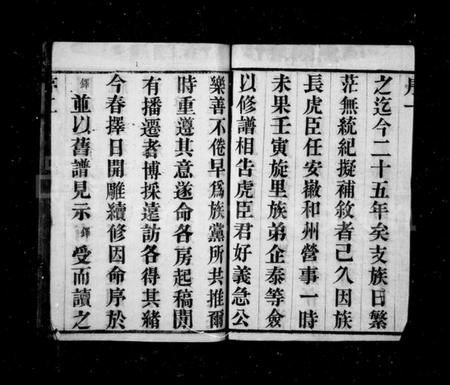 序一
之迄今二十五年矣支族日繁
茫無統紀擬補敘者已久因族
長虎臣任安徽和州營事一時
未果壬寅旋里族弟企泰等僉
以修譜相吿虎臣君好義急公
樂善不倦早爲族黨所共推爾
時重遵其意遂命各房起稿閒
有播遷者博採遠訪各得其緖
今春擇日開雕續修因命序於
鐸並以舊譜見示鐸受而讀之